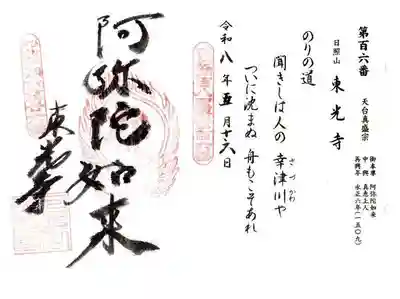 第百六番
天台真盛宗
御本尊 阿弥陀如来
中興 真恵上人
再興年 永正六年(一五〇九)
日照山 東光寺
のりの道
聞きしは人の幸津川や
さづかわ
ついに沈まぬ舟もこそあれ
令和八年五月十六日
阿弥陀如来
東光寺